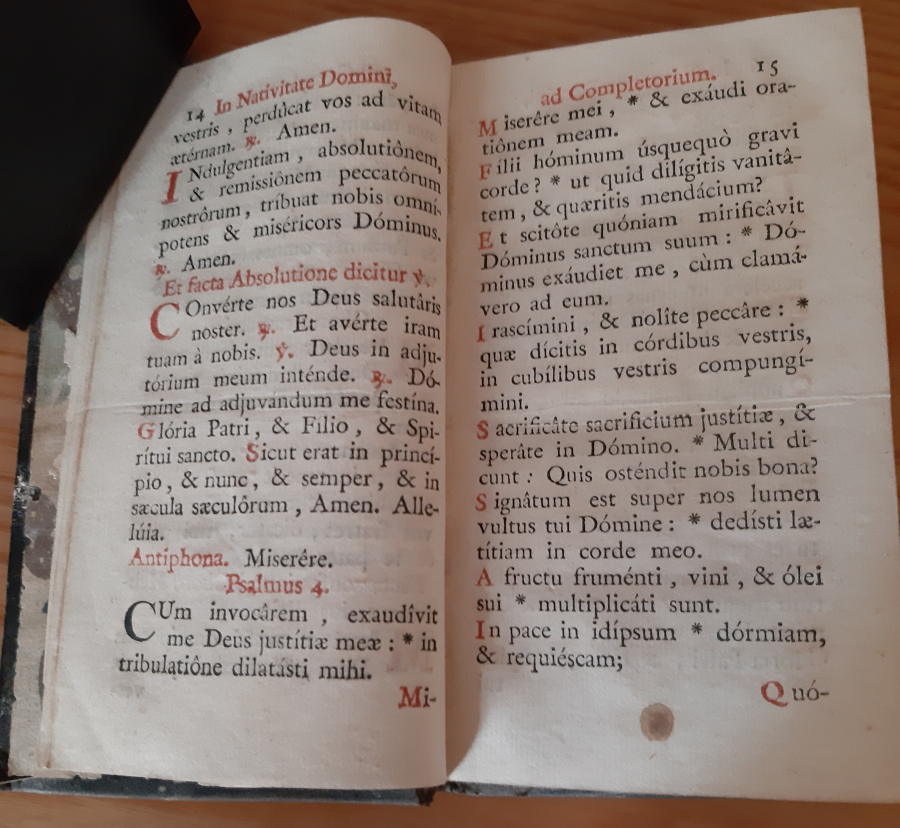 14 In Nativitate Domini,
vestris , perdûcat vos ad vitam
ætérnam. ℟. Amen.
INdulgentiam , absolutiônem,
& remissiônem peccatôrum
nostrôrum, tríbuat nobis omní-
potens & miséricors Dóminus.
℟. Amen.
Et facta Absolutione dicitur ℣.
COnvérte nos Deus salutâris
noster. ℟. Et avérte iram
tuam à nobis. ℣. Deus in adju-
tórium meum inténde. ℟. Dó-
mine ad adjuvándum me festína.
Glória Patri , & Fílio , & Spi-
rítui sancto. Sicut erat in princí-
pio , & nunc , & semper , & in
sæcula sæculôrum , Amen. Alle-
lúia.
Antiphona. Miserêre.
Psalmus 4.
CUm invocârem , exaudîvit
me Deus justítiæ meæ : * in
tribulatiône dilatásti mihi.
Mi-
ad Completorium. 15
Miserêre mei , * & exáudi ora-
tiônem meam.
Fílii hóminum úsquequò gravi
corde ? * ut quid dilígitis vanitâ-
tem , & quæritis mendácium?
Et scitôte quóniam mirificâvit
Dóminus sanctum suum : * Dó-
minus exáudiet me , cùm clamá-
vero ad eum.
Irascímini , & nolîte peccâre : *
quæ dícitis in córdibus vestris,
in cubílibus vestris compungí-
mini.
Sacrificâte sacrificium justítiæ , &
sperâte in Dómino. * Multi di-
cunt : Quis osténdit nobis bona?
Signâtum est super nos lumen
vultus tui Dómine : * dedísti læ-
títiam in corde meo.
A fructu fruménti , vini , & ólei
sui * multiplicáti sunt.
In pace in idípsum * dórmiam,
& requiéscam;
Quó-